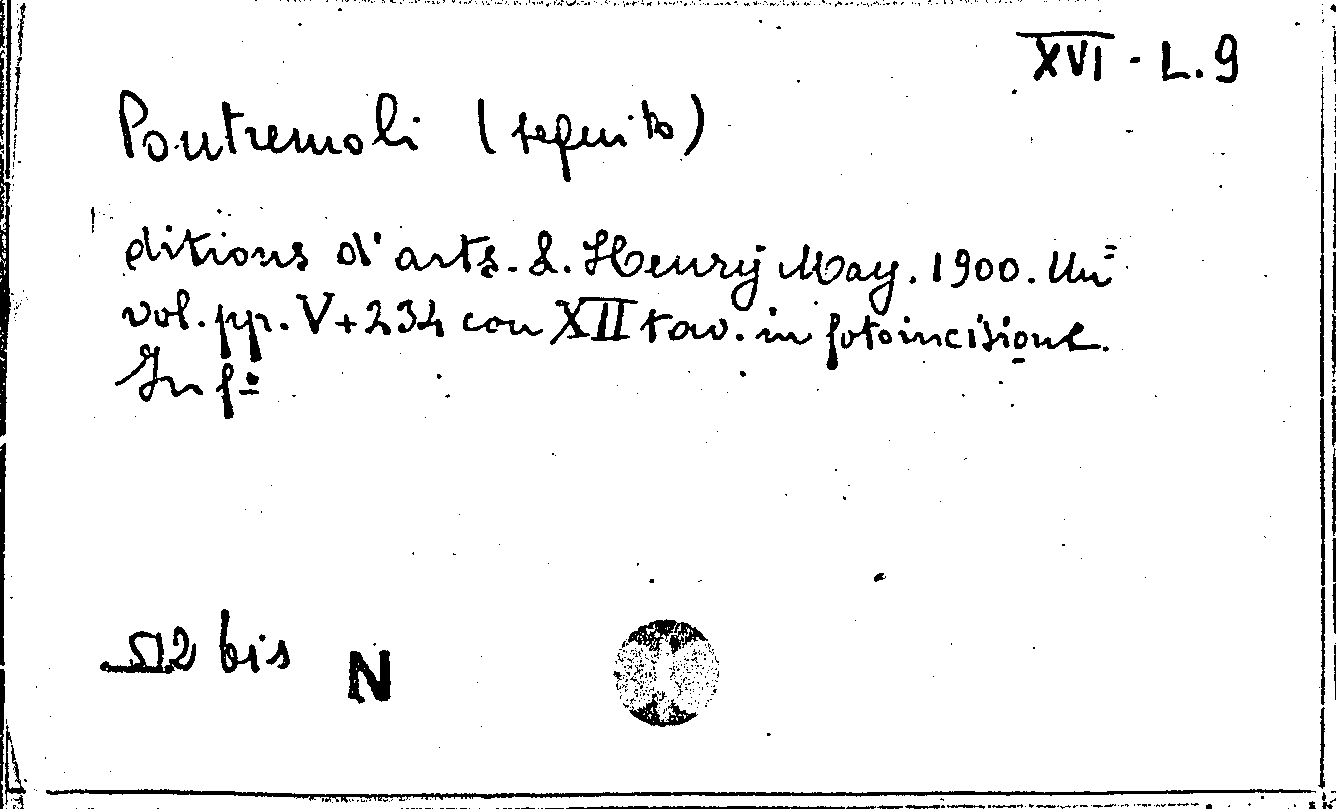 XVI - L. 9
Pontremoli (seguito)
editions d'arts. L. Henry May. 1900. Un
vol. pp. V+234 con XII tav. in fotoincisione.
In fº
512 bis N